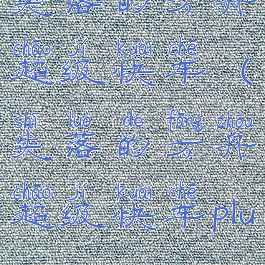 失落的方舟
chāo jí kuài chē
超级快车（
shī luò de fāng zhōu
失落的方舟
chāo jí kuài chē
超级快车plu